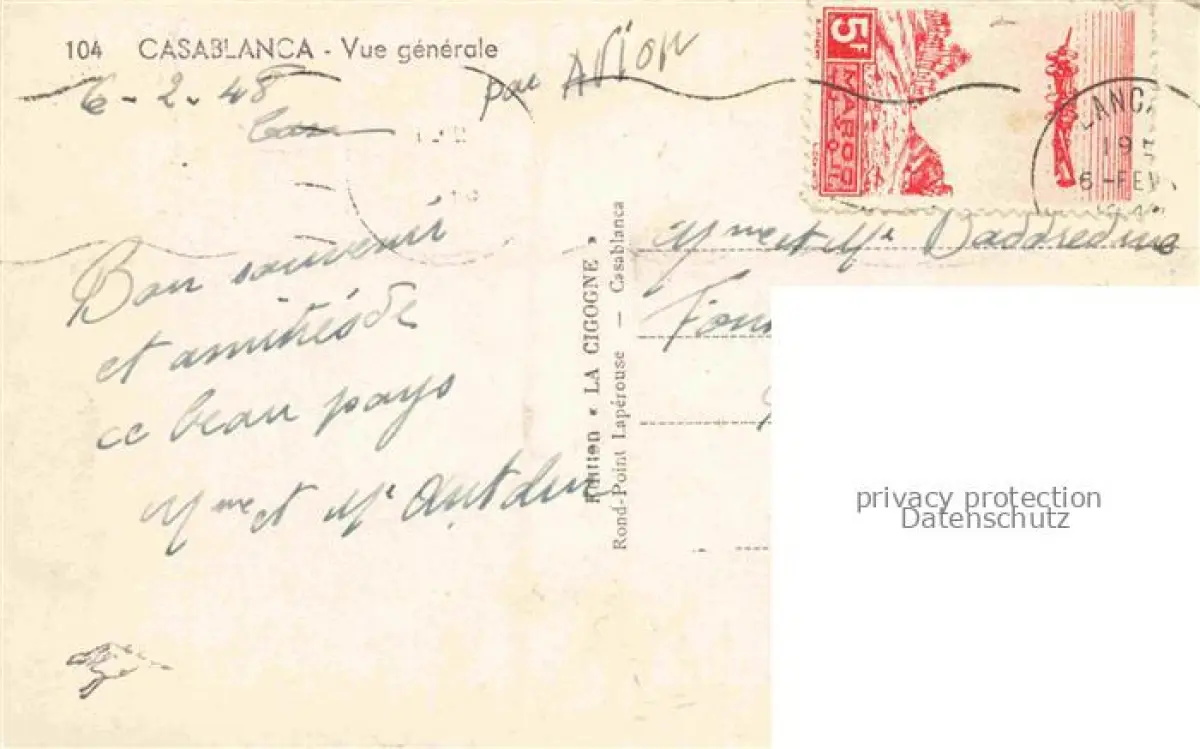 104 CASABLANCA - Vue générale
6-2-48
par AVION
5F
MAROC
LANCA
19
6-FEV
Bon souvenir
et amitiés de
ce beau pays
Mme et Mr
Edition « LA CIGOGNE »
Rond-Point Lapérouse — Casablanca
Mme et Mr
privacy protection
Datenschutz